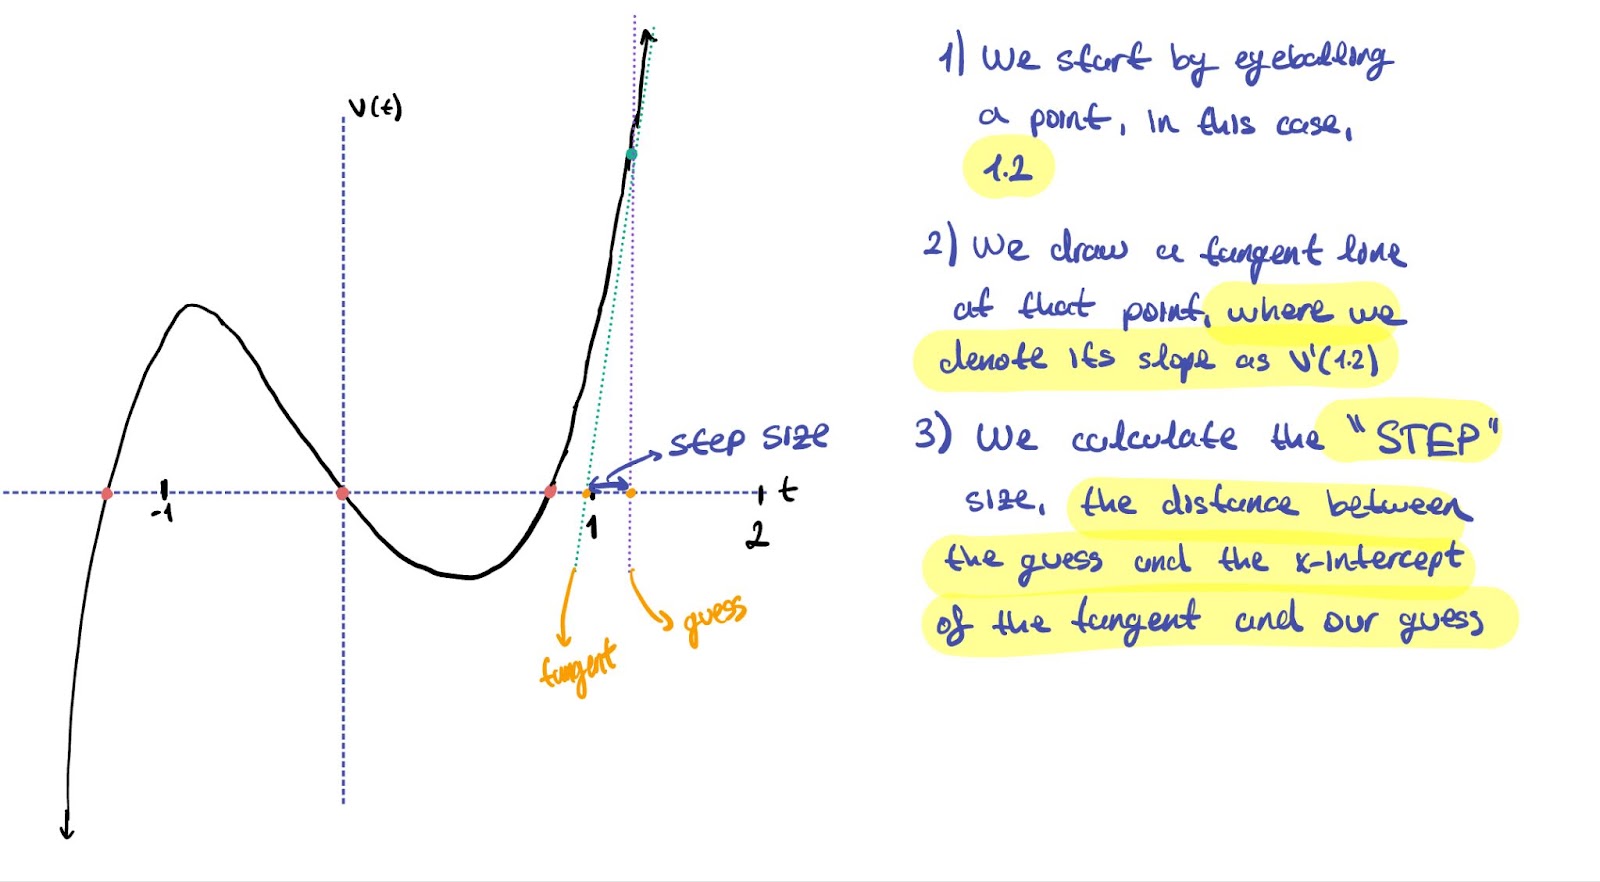 V(t)
step size
t
-1
1
2
guess
tangent
1) We start by eyeballing
a point, in this case,
1.2
2) We draw a tangent line
at that point, where we
denote its slope as V'(1.2)
3) We calculate the "STEP"
size, the distance between
the guess and the x-intercept
of the tangent and our guess